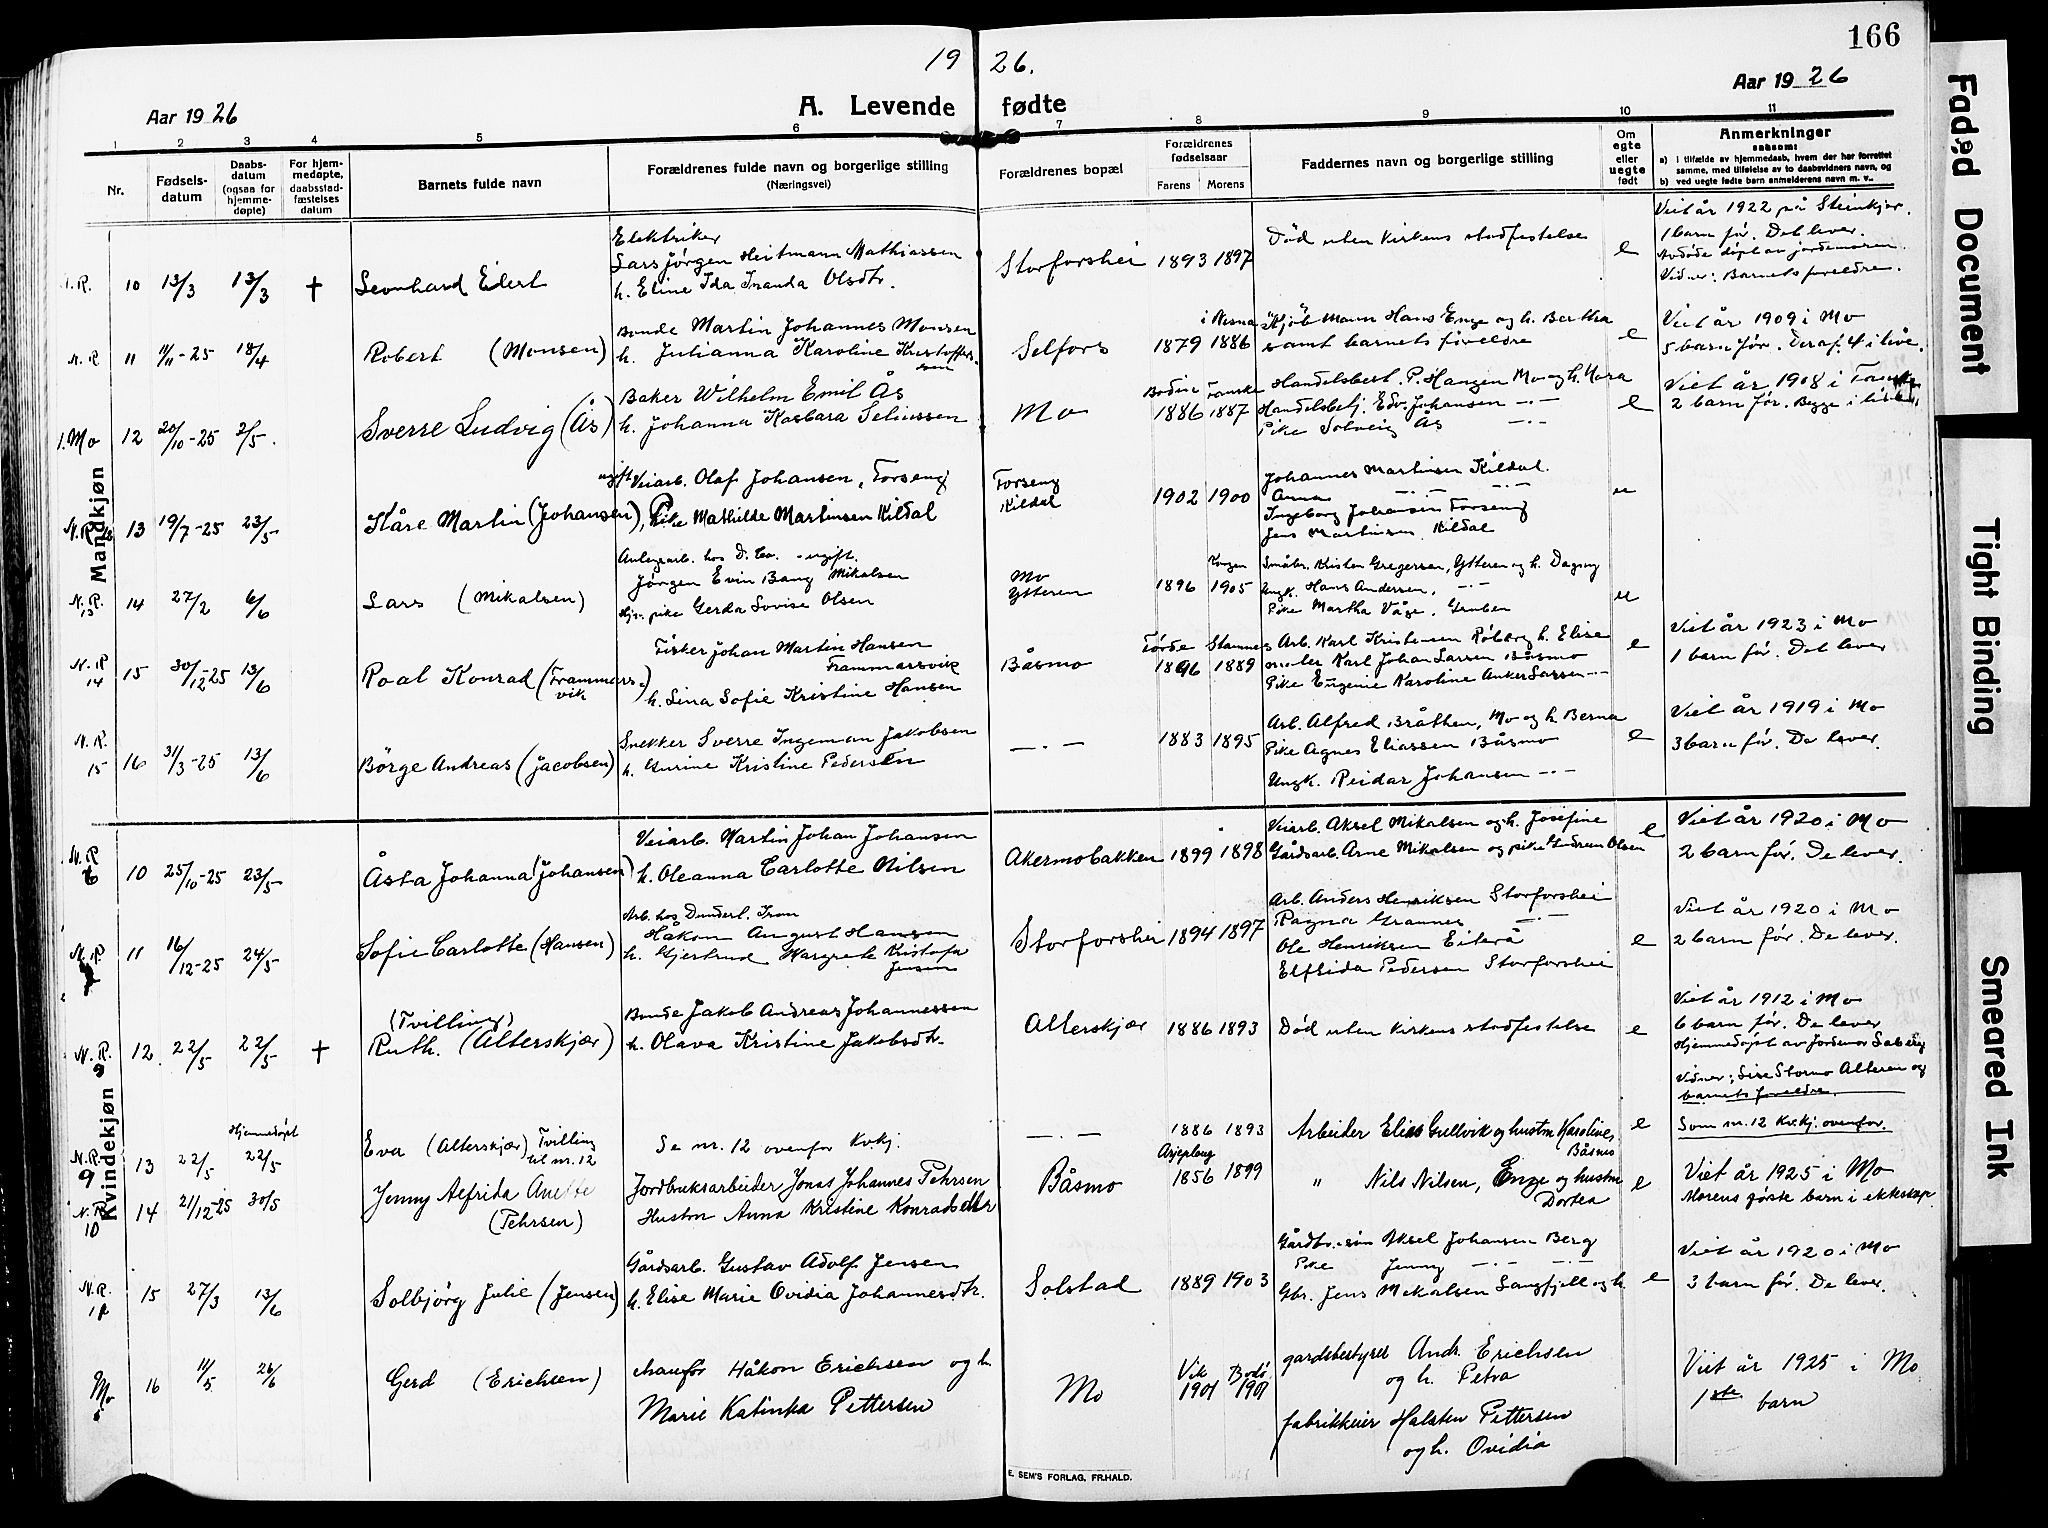 166
19 26.
Aar 1926
A. Levende fødte
Aar 1926
1 2 3 4 5 6 7 8 9 10 11
Nr.
Fødsels-
datum
Daabs-
datum
(ogsaa for
hjemme-
døpte)
For hjem-
medøpte,
daabsstad-
fæstelses
datum
Barnets fulde navn
Forældrenes fulde navn og borgerlige stilling
(Næringsvei)
Forældrenes bopæl
Forældrenes
fødselsaar
Farens Morens
Faddernes navn og borgerlige stilling
Om
egte
eller
uegte
født
Anmerkninger
saasom:
a) i tilfælde av hjemmedaab, hvem der har forrettet
samme, med tilføielse av to daabsvidners navn, og
b) ved uegte fødte barn anmelderens navn m. v.
Mandkjøn
10 13/3 13/3 † Leonhard Edert
Elektriker
Lars Jørgen Heitmann Mathiassen
h. Eline Ida Iranda Olsdtr.
Storforshei 1893 1897
Død uten kirkens stadfestelse
e
Viet år 1922 på Steinkjær.
1 barn før. Det lever.
døpt av jordmoren.
Vidner: Barnets foreldre.
N.R. 11 11/11-25 18/4 Robert (Monsen)
Bonde Martin Johannes Monsen
h. Julianna Karoline Kristoffer-
sen
Selfors
i Nesna
1879 1886
Kjøbmann Hans Enge og h. Bertha
samt barnets foreldre
e
Viet år 1909 i Mo
5 barn før. Deraf 4 i live.
1. Mo 12 20/10-25 2/5. Sverre Ludvig (Ås)
Baker Wilhelm Emil Ås
h. Johanna Kasbara Seliussen
Mo
Bodin
1886 1887
Handelsbest. P. Hanzen Mo og h. Nora
Handelsbetj. Edv. Johansen -.-
Pike Solveig Ås -.-
e
Viet år 1908 i
2 barn før. Begge i
N.R. 13 19/7-25 23/5 Kåre Martin (Johansen)
ugift Veiarb. Olaf Johansen, Forseng
Pike Mathilde Martinsen Kildal
Forseng
Kildal
1902 1900
Johannes Martinsen Kildal.
Anna -.- -.-
Ingeborg Johansen Forseng
Jens Martinsen Kildal
u
N.R.
13 14 27/2 6/6 Lars (Mikalsen)
Anlegsarb. hos D. Co. - ugift.
Jørgen Evin Bang Mikalsen
pike Gerda Lovise Olsen
Mo
Ytteren
1896 1905
Småbr. Kristen Gregersen, Ytteren og h. Dagny
Ungk. Hans Andersen, -.-
Pike Martha Våge, Gruben
u
N.R.
14 15 30/12-25 13/6 Roal Konrad (Frammars-
vik)
Fisker Johan Martin Hansen
Frammarsvik
h. Lina Sofie Kristine Hansen
Båsmo
Førde Stamnes
1896 1889
Arb. Karl Kristensen Røberg h. Elise
maler Karl Johan Larsen Båsmo
Pike Eugenie Karoline Anker Larsen -.-
e
Viet år 1923 i Mo
1 barn før. Det lever
N.R.
15 16 31/3-25 13/6 Børge Andreas (Jacobsen)
Snekker Sverre Ingeman Jakobsen
h. Gurine Kristine Pedersen
-.- 1883 1895
Arb. Alfred Bråthen, Mo og h. Berna
Pike Agnes Eliassen Båsmo
Ungk. Reidar Johansen -.-
e
Viet år 1919 i Mo
3 barn før. De lever.
Kvindekjøn
N.R.
6 10 25/10-25 23/5 Åsta Johanna (Johansen)
Veiarb. Martin Johan Johansen
h. Oleanna Carlotte Nilsen
Akermobakken 1899 1898
Veiarb. Aksel Mikalsen og h. Josefine
Gårdsarb. Arne Mikalsen og pike Gudrun Olsen
e
Viet år 1920 i Mo
2 barn før. De lever.
N.R. 11 16/12-25 24/5 Sofie Carlotte (Hansen)
Arb. hos Dunderl. Iron
Håkon August Hansen
h. Gjertrud Margrete Kristofa
Jensen
Storforshei 1894 1897
Arb. Anders Henriksen Storforshei
Ragna Grannes -.-
Ole Henriksen Eiterå
Elfrida Pedersen Storforshei
e
Viet år 1920 i Mo
2 barn før. De lever.
N.R.
9 12. 22/5 22/5 † (Tvilling)
Ruth. (Alterskjær)
Bonde Jakob Andreas Johannessen
h. Olava Kristine Jakobsdtr.
Alterskjær 1886 1893
Død uten kirkens stadfestelse
e
Viet år 1912 i Mo
6 barn før. De lever
Hjemmedøpt av Jordmor
Vidner: Sire Stormo Alteren og
barnets foreldre.
N.R.
9 13 22/5 Hjemmedøpt 22/5 Eva (Alterskjær) Tvilling
til nr. 12
Se nr. 12 ovenfor Kvkj.
-.- 1886 1893
Arbeider Elias Gullvik og hustru Karoline,
Båsmo
e
Som nr. 12 Kv.kj. ovenfor.
N.R.
10 14 21/12-25 30/5 Jenny Alfrida Anette
(Pehrsen)
Jordbruksarbeider Jonas Johannes Pehrsen
Hustru Anna Kristine Konradsdtr
Båsmo
Arjeplong
1856 1899
" Nils Nilsen, Enge og hustru
Dortea
e
Viet år 1925 i Mo
Morens første barn i ekteskap.
N.R.
15 27/3 13/6 Solbjörg Julie (Jensen)
Gårdsarb. Gustav Adolf Jensen
h. Elise Marie Ovidia Johannesdtr.
Solstad 1889 1903
Gårdbr.-søn Aksel Johansen Berg
Pike Jenny -.- -.-
Gbr. Jens Mikalsen Langfjell og h
e
Viet år 1920 i Mo
3 barn før. De lever.
Mo 16 11/5 26/6 Gerd (Erichsen)
chauffør Håkon Erichsen og h.
Marie Katinka Pettersen
Mo
Vik Bodø.
1901 1901
gardsbestyrer Andr. Erichsen
og h. Petra
fabrikkeier Halsten Pettersen
og h. Ovidia
Viet år 1925 i Mo
1ste barn
E. SEM'S FORLAG, FR.HALD.
Faded Document
Tight Binding
Smeared Ink